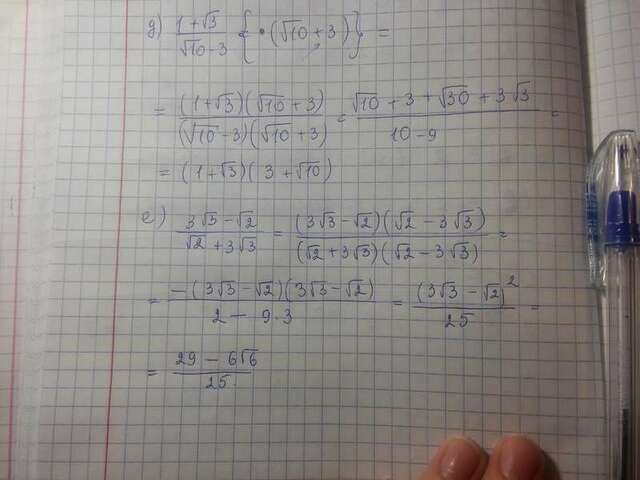 д) (1+√3)/(√10-3) {·(√10+3)} =
= ((1+√3)(√10+3))/((√10-3)(√10+3)) = (√10+3+√30+3√3)/(10-9) =
= (1+√3)(3+√10)
е) (3√3-√2)/(√2+3√3) = ((3√3-√2)(√2-3√3))/((√2+3√3)(√2-3√3)) =
= (-(3√3-√2)(3√3-√2))/(2-9·3) = (3√3-√2)²/25 =
= (29-6√6)/25